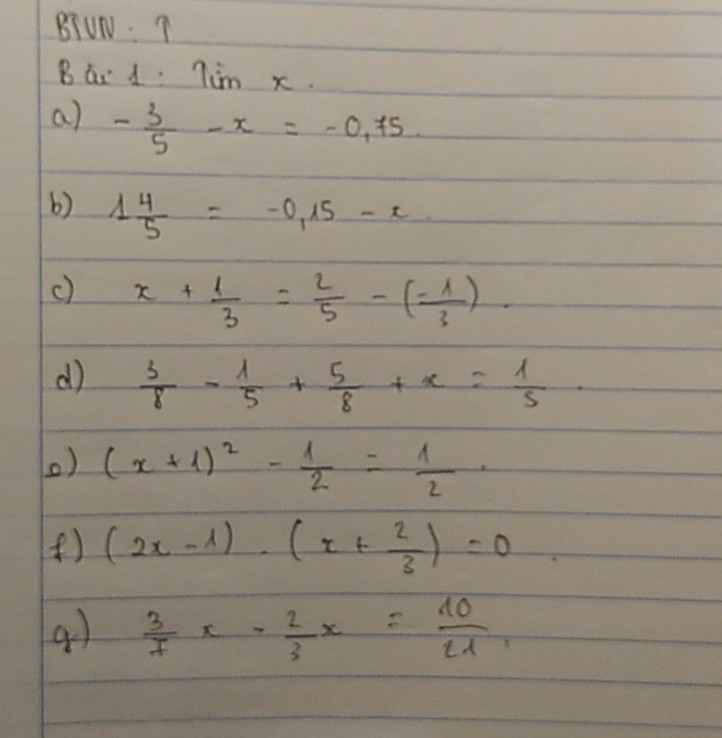 BTVN : ?
Bài 1 : Tìm x .
a) - 3/5 - x = -0,75 .
b) 1 4/5 = -0,15 - x .
c) x + 1/3 = 2/5 - (-1/3) .
d) 3/8 - 1/5 + 5/8 + x = 1/5 .
e) (x + 1)² - 1/2 = 1/2 .
f) (2x - 1) . (x + 2/3) = 0 .
g) 3/7 x - 2/3 x = 10/21 .